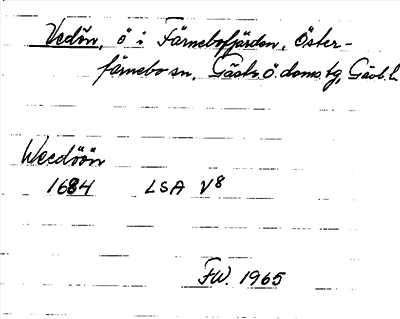 Vedön, ö i Färnebofjärden, Öster-
färnebo sn, Gästr. ö. doms tg, Gävl. l.
Weedöön
1684 LSA V8
FW. 1965